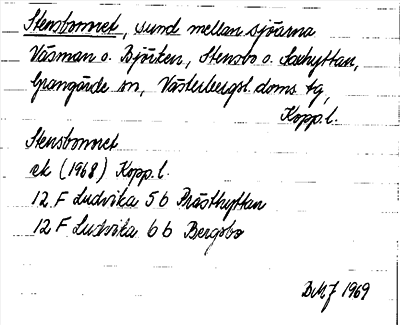 Stensbornet, sund mellan sjöarna
Väsman o. Björken, Stensbo o. Saxhyttan,
Grangärde sn, Västerbergsl. doms. tg,
Kopp. l.
Stensbornet
ek (1968) Kopp. l.
12 F Ludvika 5 b Prästhyttan
12 F Ludvika 6 b Bergsbo
1969